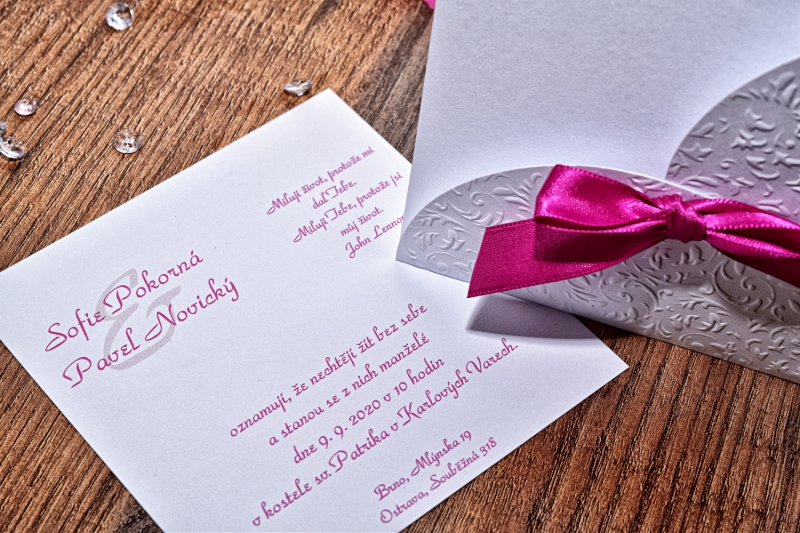 Miluji život, protože mi
dal Tebe.
Miluji Tebe, protože jsi
můj život.
John Lennon
Sofie Pokorná
&
Pavel Novický
oznamují, že nechtějí žít bez sebe
a stanou se z nich manželé
dne 9. 9. 2020 v 10 hodin
v kostele sv. Patrika v Karlových Varech.
Brno, Mlýnska 19
Ostrava, Souběžná 318